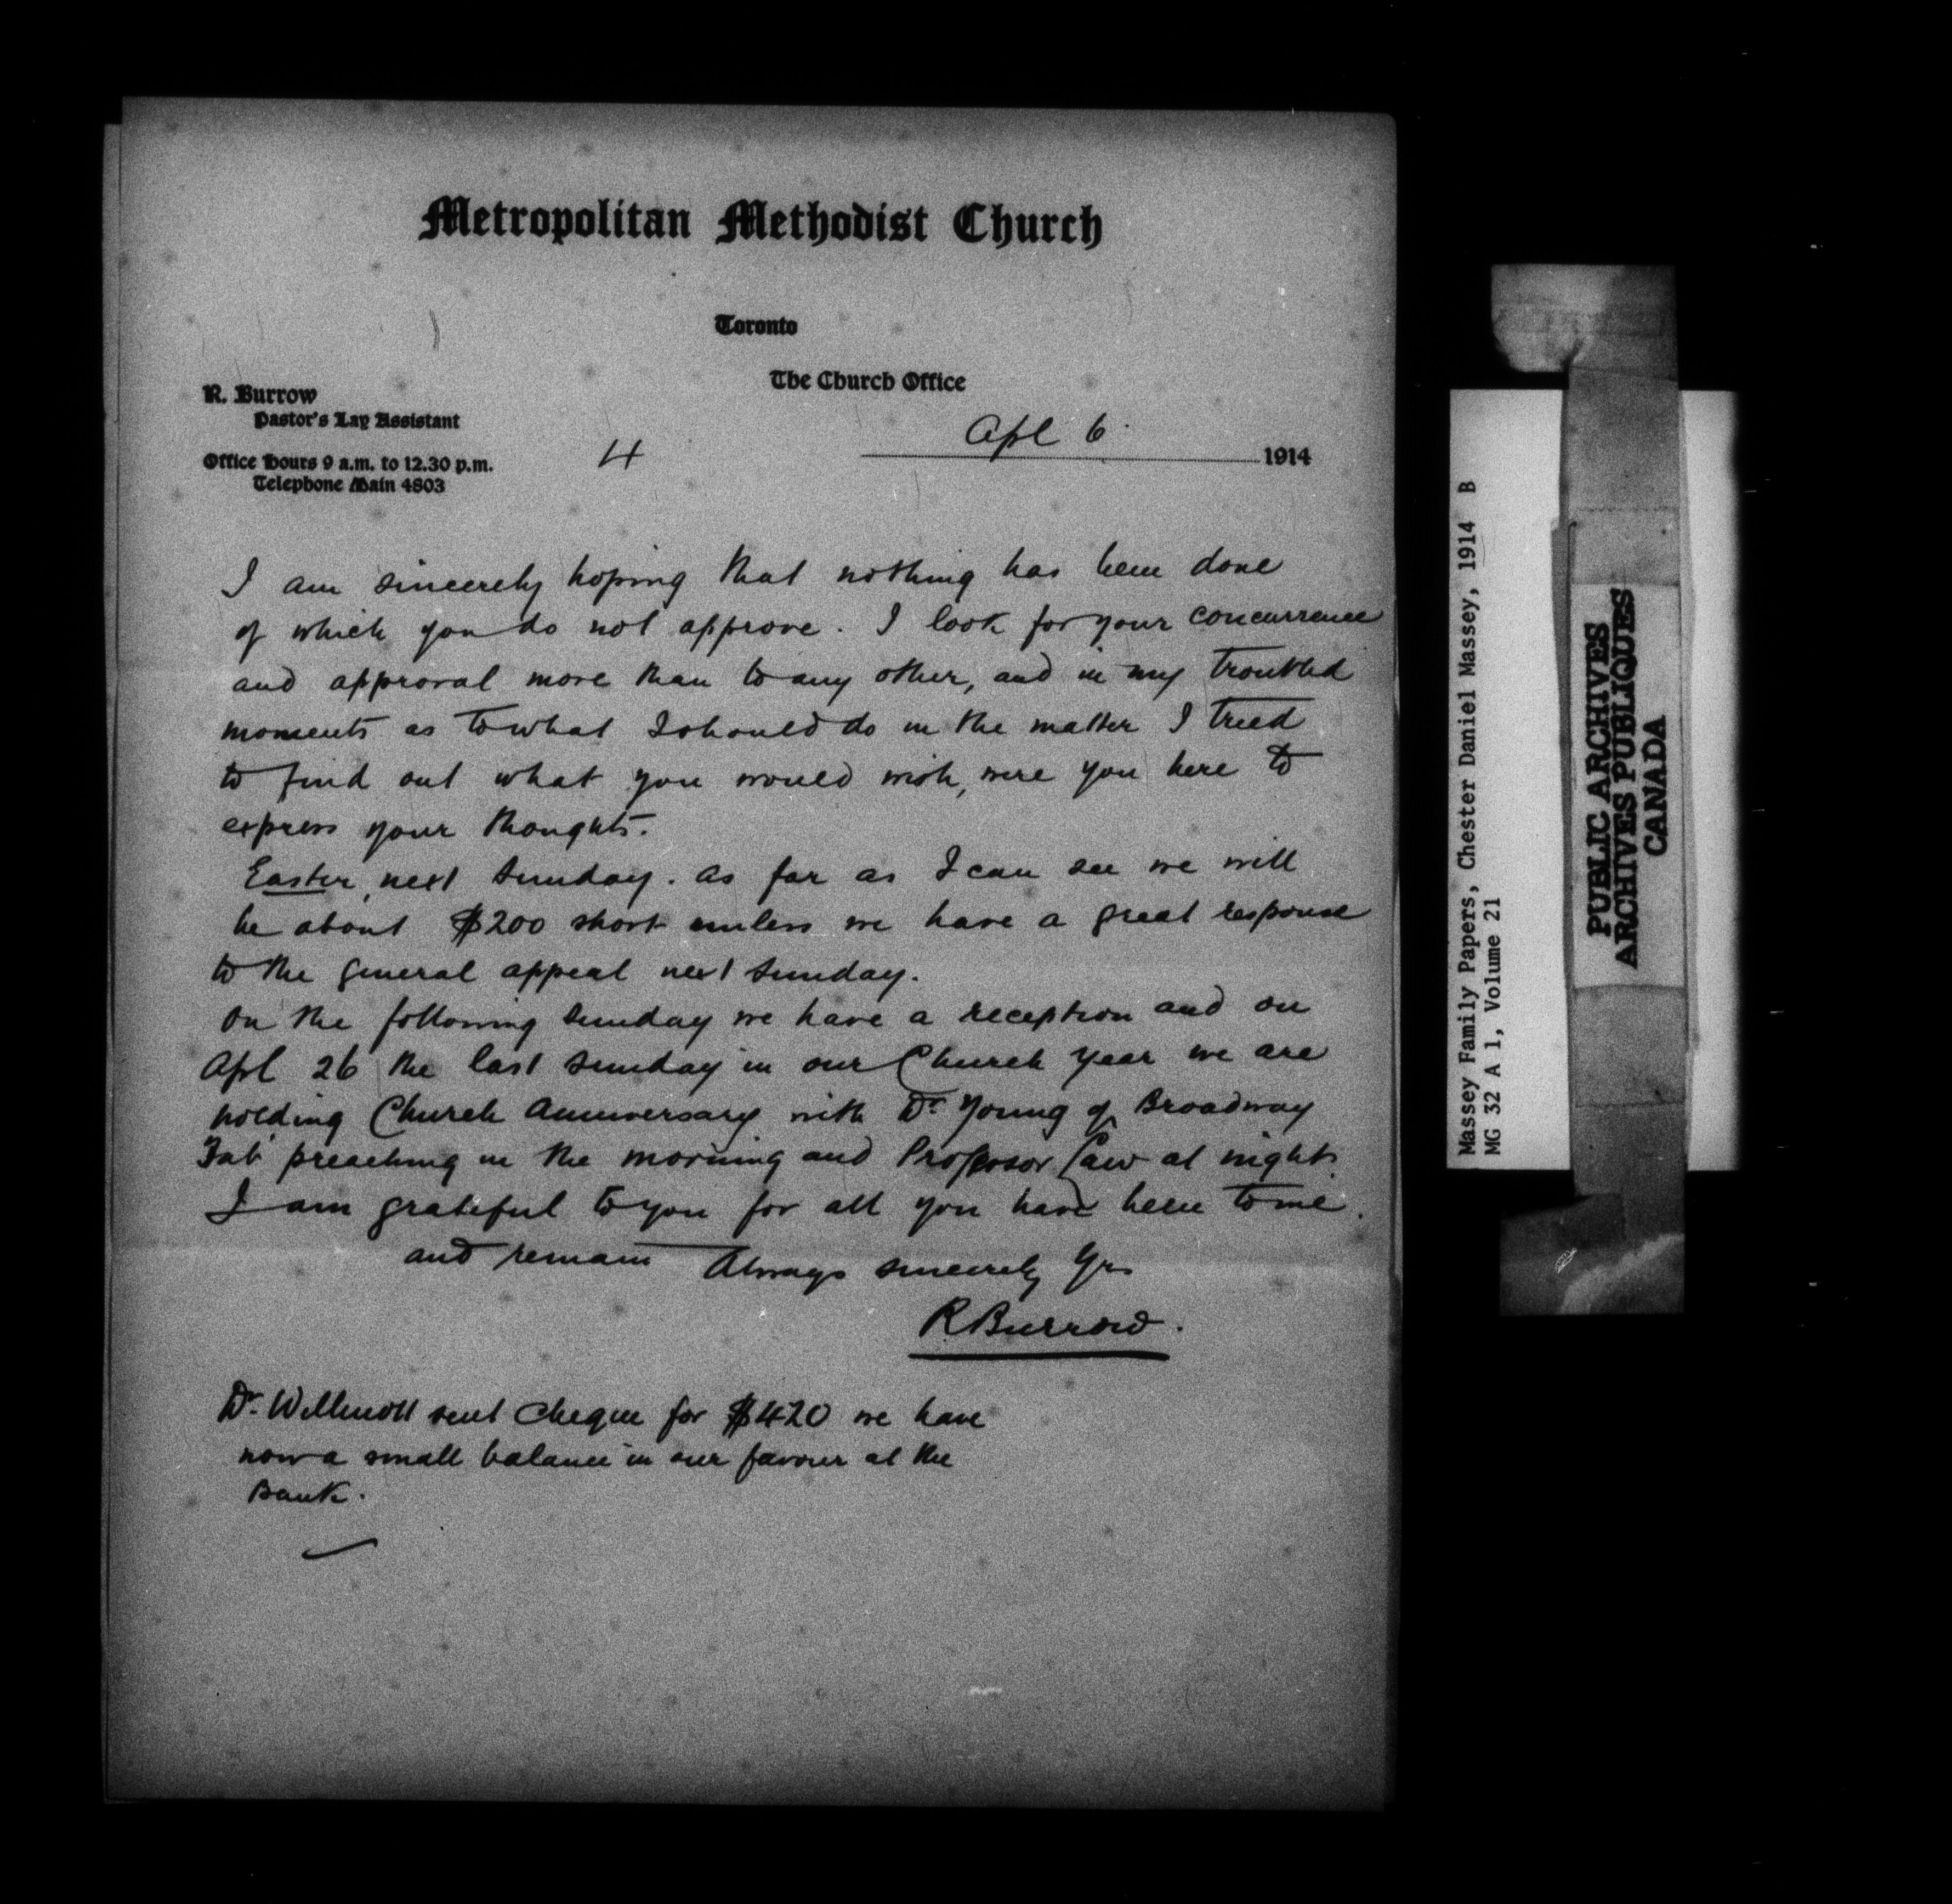 Metropolitan Methodist Church
Toronto
The Church Office
R. Burrow
Pastor's Lay Assistant
Office Hours 9 a.m. to 12.30 p.m.
Telephone Main 4803
4
Apl 6. 1914
I am sincerely hoping that nothing has been done
of which you do not approve. I look for your concurrence
and approval more than to any other, and in my troubled
moments as to what I should do in the matter I tried
to find out what you would wish, were you here to
express your thoughts.
Easter next Sunday. As far as I can see we will
be about $200 short unless we have a great response
to the general appeal next Sunday.
On the following Sunday we have a reception and on
Apl 26 the last Sunday in our Church year we are
holding Church Anniversary with Dr Young of Broadway
Tab' preaching in the morning and Professor Law at night.
I am grateful to you for all you have been to me.
and remain Always sincerely Yrs
R Burrow.
Dr. Willmott sent cheque for $420 we have
now a small balance in our favour at the
Bank.
Massey Family Papers, Chester Daniel Massey, 1914 B
MG 32 A 1, Volume 21
PUBLIC ARCHIVES
ARCHIVES PUBLIQUES
CANADA